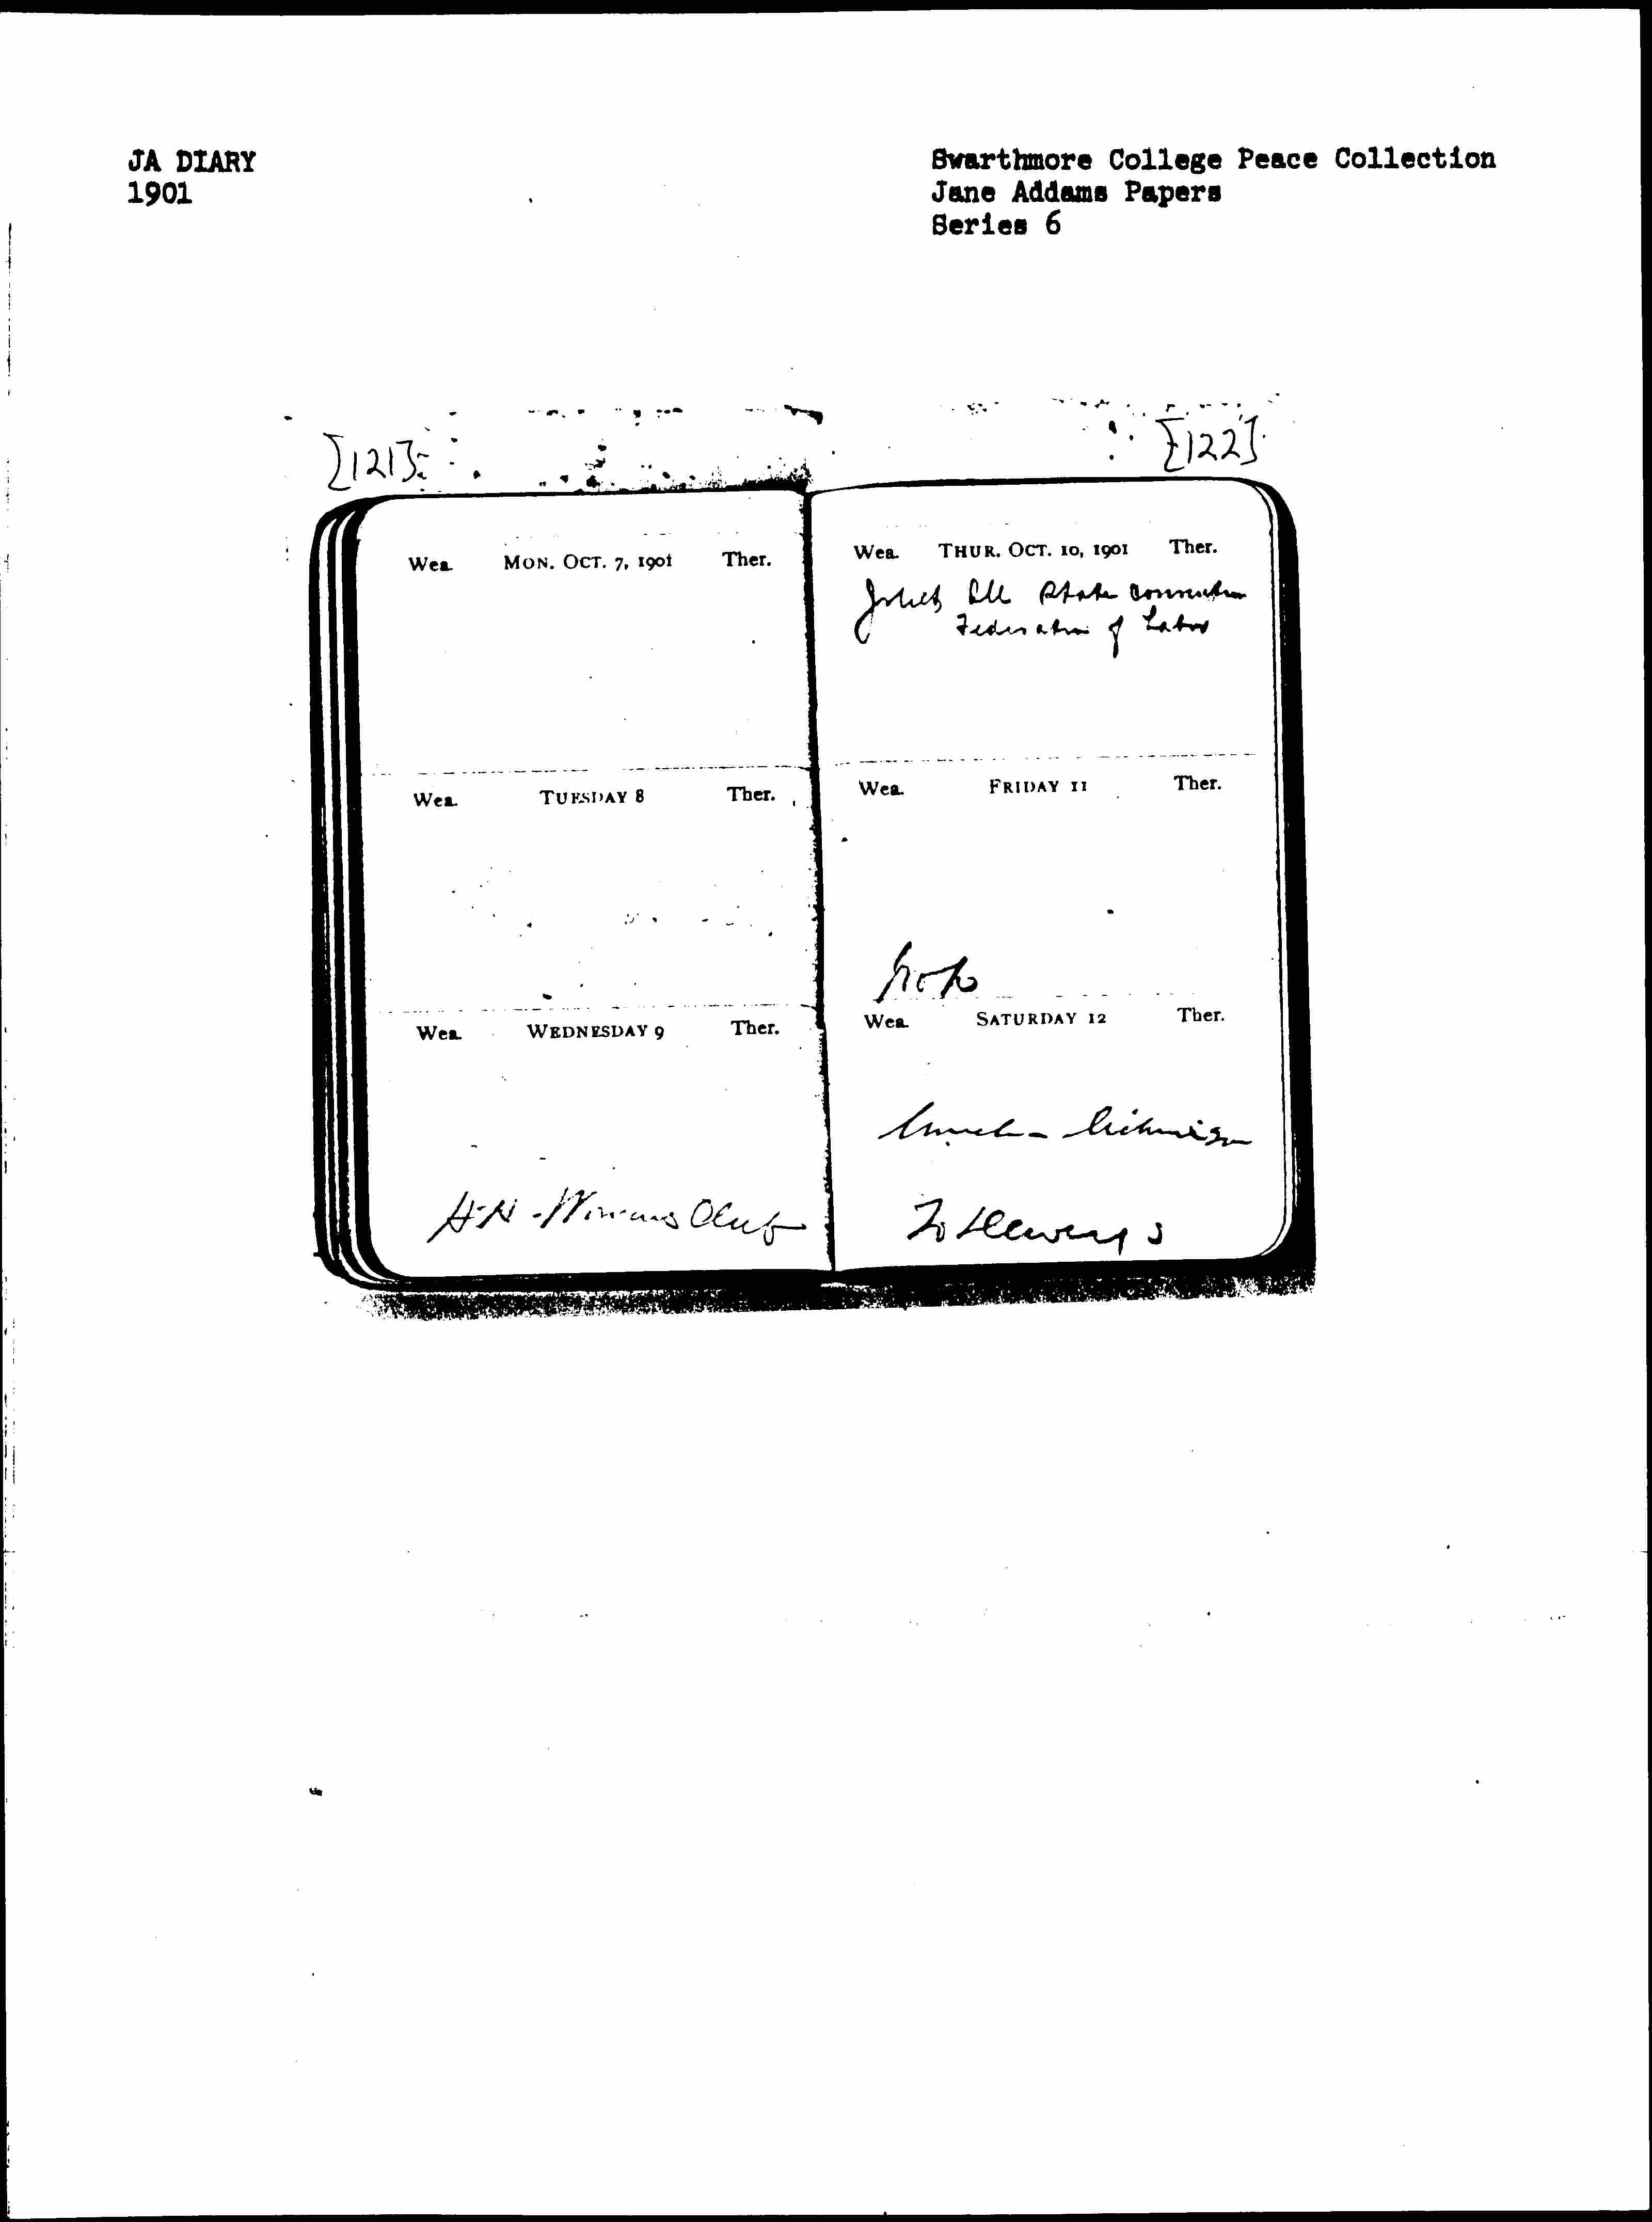 JA DIARY
1901
Swarthmore College Peace Collection
Jane Addams Papers
Series 6
[121]
[122]
Wea. MON. OCT. 7, 1901 Ther.
Wea. TUESDAY 8 Ther.
Wea. WEDNESDAY 9 Ther.
H-H - Womans Club
Wea. THUR. OCT. 10, 1901 Ther.
Joliet Ill State Convention
Federation of Labor
Wea. FRIDAY 11 Ther.
Wea. SATURDAY 12 Ther.
Lunch -
To Deweys